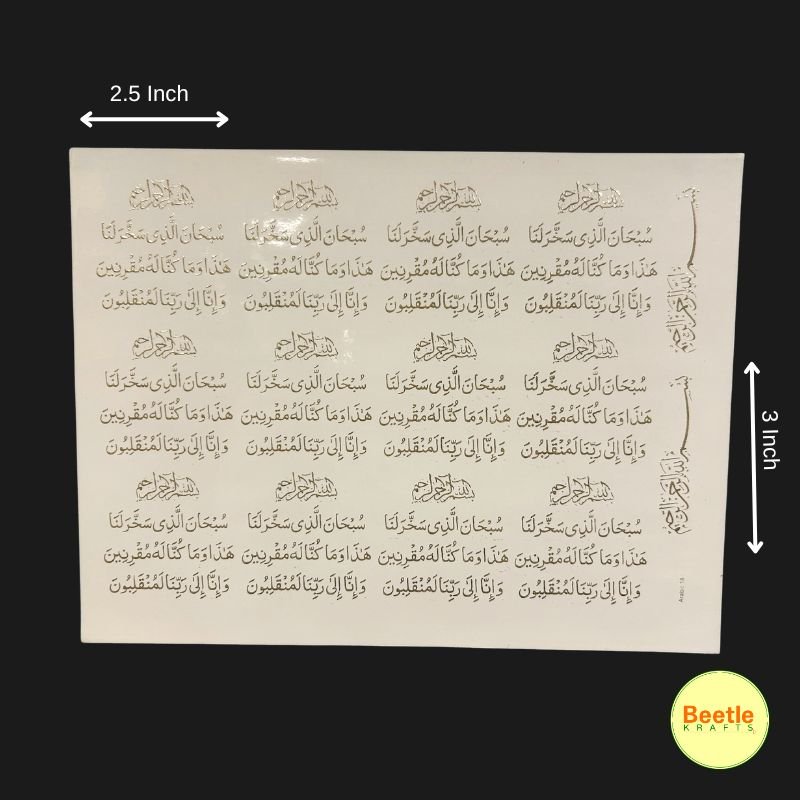 2.5 Inch
بسم الله الرحمن الرحيم
سُبْحَانَ الَّذِى سَخَّرَلَنَا
هَٰذَا وَمَا كُنَّا لَهُ مُقْرِنِينَ
وَإِنَّا إِلَى رَبِّنَا لَمُنْقَلِبُونَ
بسم الله الرحمن الرحيم
سُبْحَانَ الَّذِى سَخَّرَلَنَا
هَٰذَا وَمَا كُنَّا لَهُ مُقْرِنِينَ
وَإِنَّا إِلَى رَبِّنَا لَمُنْقَلِبُونَ
بسم الله الرحمن الرحيم
سُبْحَانَ الَّذِى سَخَّرَلَنَا
هَٰذَا وَمَا كُنَّا لَهُ مُقْرِنِينَ
وَإِنَّا إِلَى رَبِّنَا لَمُنْقَلِبُونَ
بسم الله الرحمن الرحيم
سُبْحَانَ الَّذِى سَخَّرَلَنَا
هَٰذَا وَمَا كُنَّا لَهُ مُقْرِنِينَ
وَإِنَّا إِلَى رَبِّنَا لَمُنْقَلِبُونَ
بسم الله الرحمن الرحيم
سُبْحَانَ الَّذِى سَخَّرَلَنَا
هَٰذَا وَمَا كُنَّا لَهُ مُقْرِنِينَ
وَإِنَّا إِلَى رَبِّنَا لَمُنْقَلِبُونَ
بسم الله الرحمن الرحيم
سُبْحَانَ الَّذِى سَخَّرَلَنَا
هَٰذَا وَمَا كُنَّا لَهُ مُقْرِنِينَ
وَإِنَّا إِلَى رَبِّنَا لَمُنْقَلِبُونَ
بسم الله الرحمن الرحيم
سُبْحَانَ الَّذِى سَخَّرَلَنَا
هَٰذَا وَمَا كُنَّا لَهُ مُقْرِنِينَ
وَإِنَّا إِلَى رَبِّنَا لَمُنْقَلِبُونَ
بسم الله الرحمن الرحيم
سُبْحَانَ الَّذِى سَخَّرَلَنَا
هَٰذَا وَمَا كُنَّا لَهُ مُقْرِنِينَ
وَإِنَّا إِلَى رَبِّنَا لَمُنْقَلِبُونَ
بسم الله الرحمن الرحيم
سُبْحَانَ الَّذِى سَخَّرَلَنَا
هَٰذَا وَمَا كُنَّا لَهُ مُقْرِنِينَ
وَإِنَّا إِلَى رَبِّنَا لَمُنْقَلِبُونَ
بسم الله الرحمن الرحيم
سُبْحَانَ الَّذِى سَخَّرَلَنَا
هَٰذَا وَمَا كُنَّا لَهُ مُقْرِنِينَ
وَإِنَّا إِلَى رَبِّنَا لَمُنْقَلِبُونَ
بسم الله الرحمن الرحيم
سُبْحَانَ الَّذِى سَخَّرَلَنَا
هَٰذَا وَمَا كُنَّا لَهُ مُقْرِنِينَ
وَإِنَّا إِلَى رَبِّنَا لَمُنْقَلِبُونَ
بسم الله الرحمن الرحيم
سُبْحَانَ الَّذِى سَخَّرَلَنَا
هَٰذَا وَمَا كُنَّا لَهُ مُقْرِنِينَ
وَإِنَّا إِلَى رَبِّنَا لَمُنْقَلِبُونَ
بسم الله الرحمن الرحيم
بسم الله الرحمن الرحيم
3 Inch
Beetle
KRAFTS